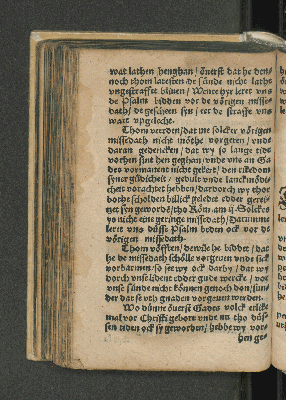 wat lathen henghan / överst dat he den
noch thom latesten de sünde nicht lathe
vngestraffet bliuen / Wente hyr leret vns
de Psalm bidden vor de vörigen misse-
dath / de gescheen syn / eer de straffe vns
wart vpgelecht.
Thom veerden / dat me solcker vörigen
missedath nicht möthe vorgeten / vnde
daran gedencken / dat wy so lange tidt
sünt hen geghan / vnde vns an Ga
des vormanent nicht gekert / den rikedom
syner güdicheit / gedult vnde lanckmödi-
cheit vorachtet hebben / dardorch wy thor
bothe scholden billick geleidet edder gerei-
tzet syn geword / tho Röm. am ij. Solckes
ys nicht eine geringe missedath / Darumme
leret vns düsse Psalm beden ock vor de
vörigen missedath.
Thom vöfften / dewile he biddet / dat
he de missedath schölle vorgeuen vnde sick
vorbarmen / so see wy ock darby / dat wy
dorch vnse edder gude wercke / vor
vnse sünde nicht können genoch don / sun-
der dat se vth gnaden vorgeuen werden.
Wo dünne överst Gades volck etlike
mal vor Christi gebort vnde an tho düs-
sen tiden ock sy geworden / hebbe wy vor-
hen ge-